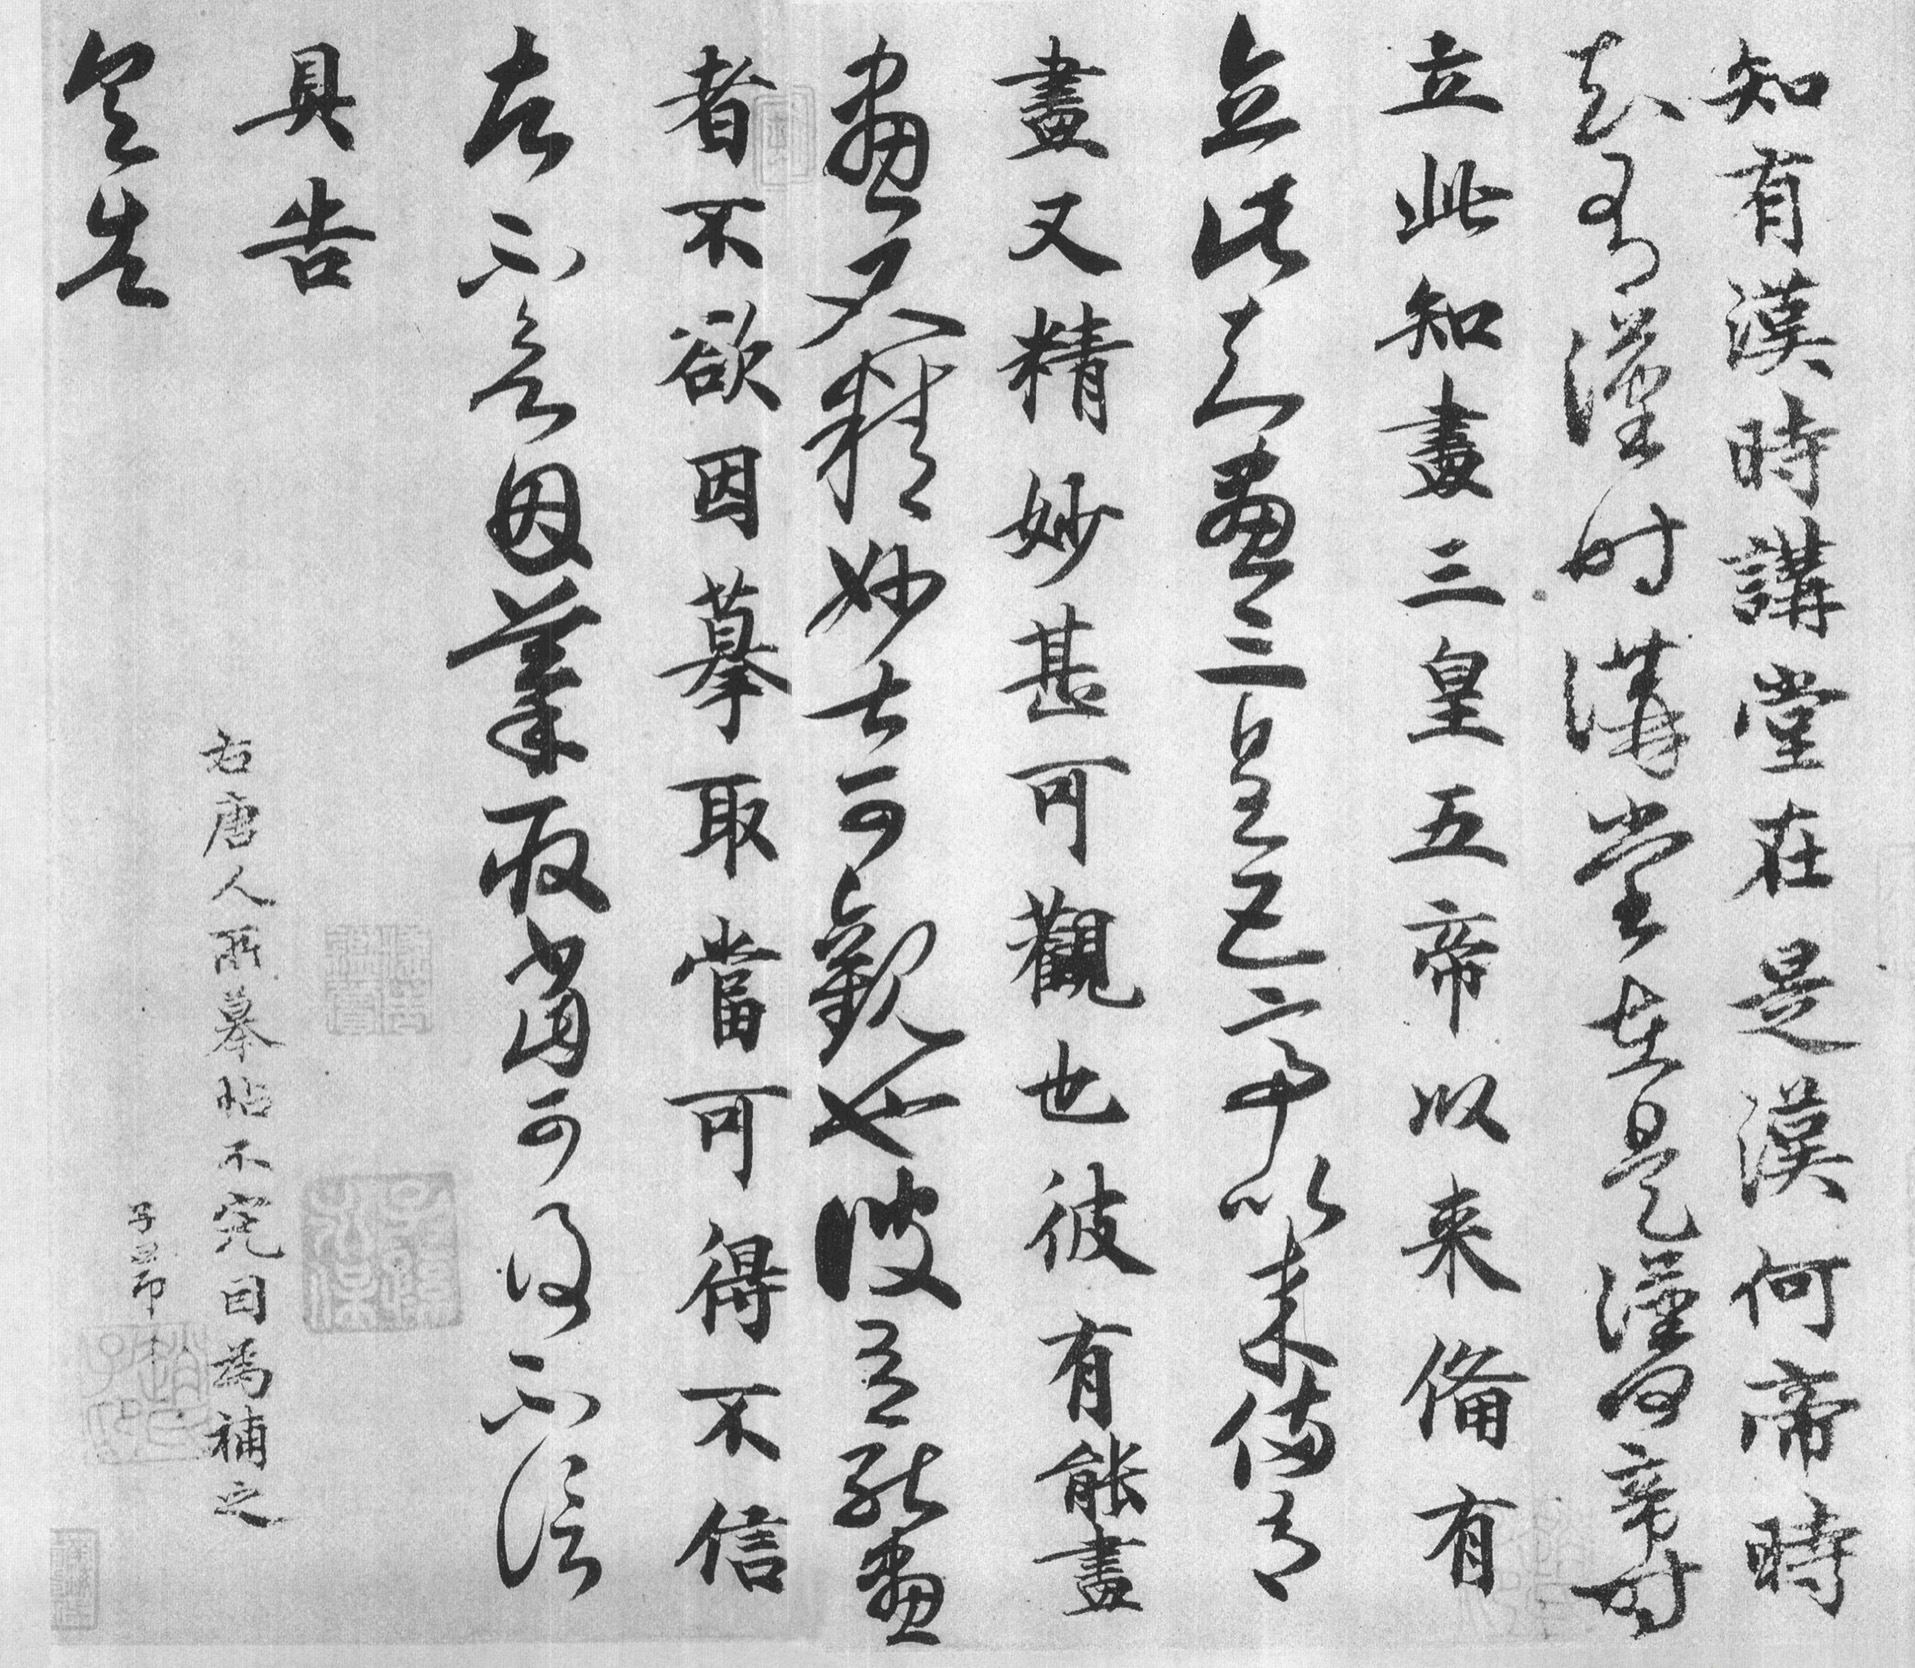 知有漢時講堂在是漢何帝時
知有漢時講堂在是漢何帝時
立此知畫三皇五帝以来備有
立此知畫三皇五帝以来備有
畫又精妙甚可觀也彼有能畫
畫又精妙甚可觀也彼有能畫
者不欲因摹取當可得不信
者不欲因摹取當可得不信
具告
具告
右唐人所摹帖不完因為補之
子昂